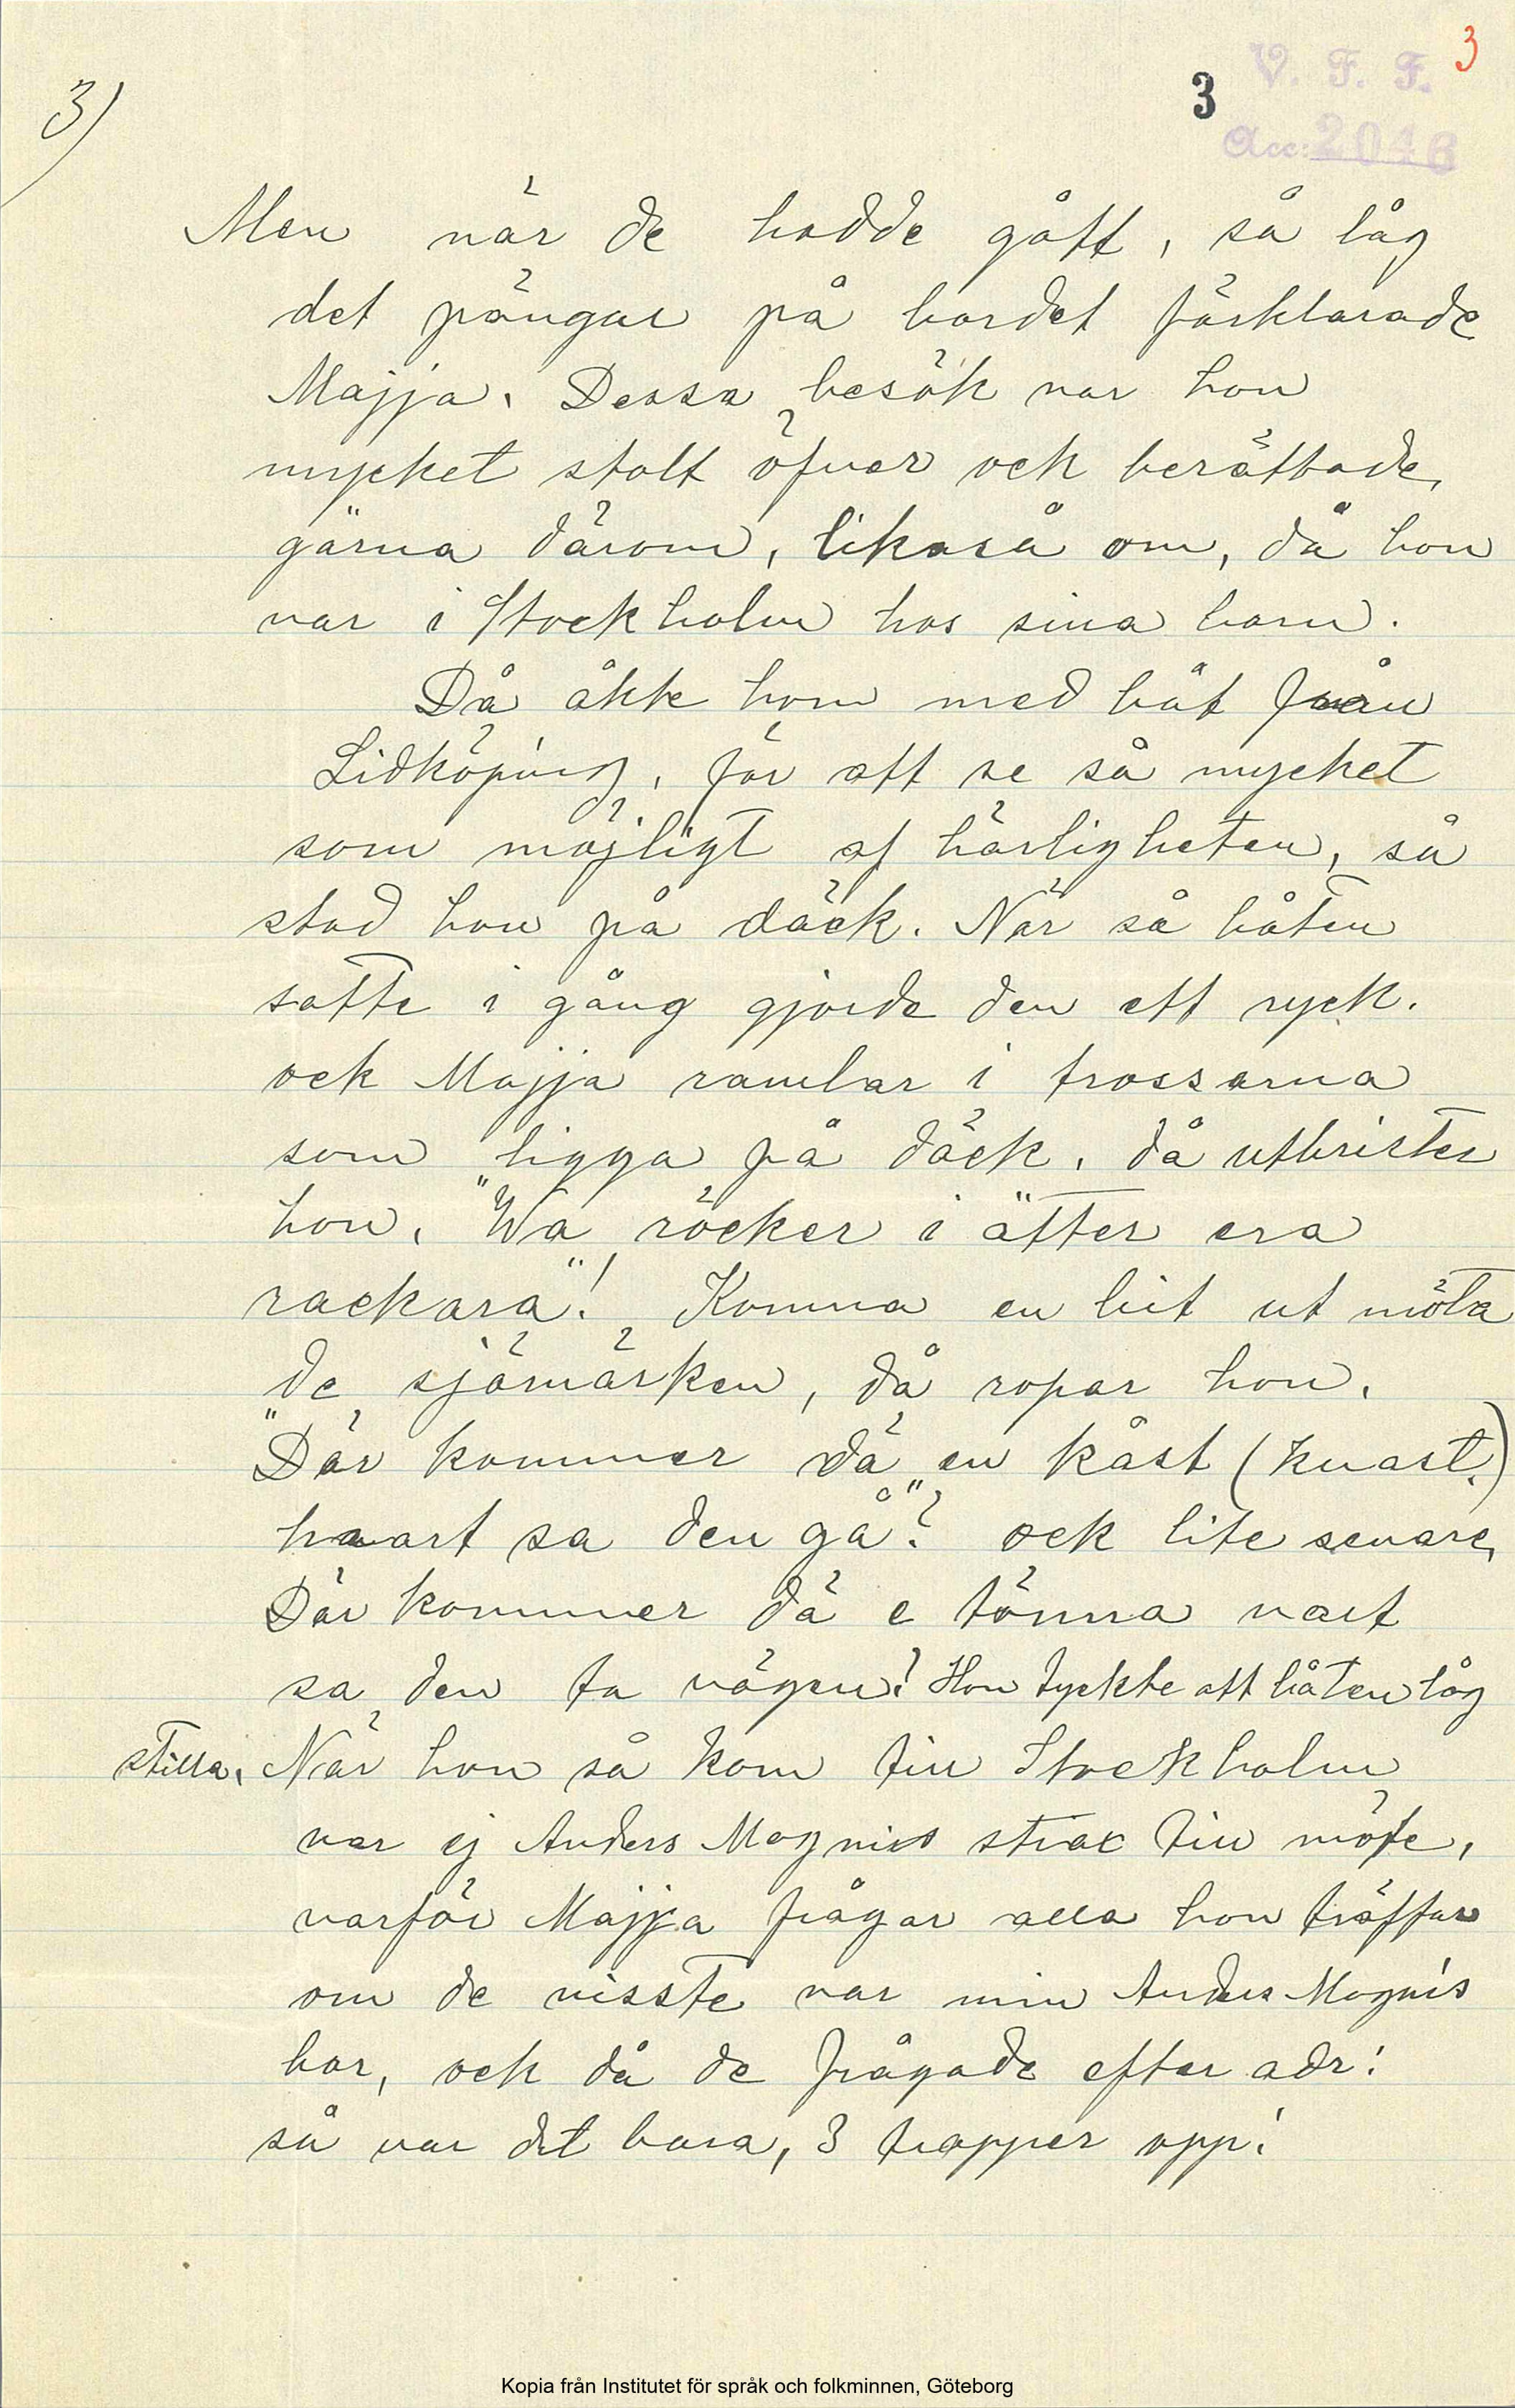 3)
3
V. F. F. 3
Acc: 2046
Men när de hadde gått, så låg
det pängar på bordet förklarade
Majja. Dessa besök var hon
mycket stolt öfver ock berättade,
gärna därom, likaså om, då hon
var i Stockholm hos sina barn.
Då åkte hon med båt från
Lidköping, för att se så mycket
som möjligt af härligheten, så
stod hon på däck. När så båten
satte i gång gjorde den ett ryck.
ock Majja ramlar i trossarna
som ligga på däck, då utbrister
hon, "Wa röcker i ätter era
rackara"! Komna en bit ut möta
de sjömärken, då ropar hon,
"Där kommer dä en kåst (kvast.)
hvart sa den gå"? ock lite senare,
Där kommer dä e tönna vart
sa den ta vägen? Hon tyckte att båten låg
stilla. När hon så kom till Stockholm
var ej Anders Magnis strax till möte,
varför Majja frågar alla hon träffar
om de visste var min Anders Magnis
bor, ock då de frågade efter adr:
så var det bara, 3 trapper opp!
Kopia från Institutet för språk och folkminnen, Göteborg